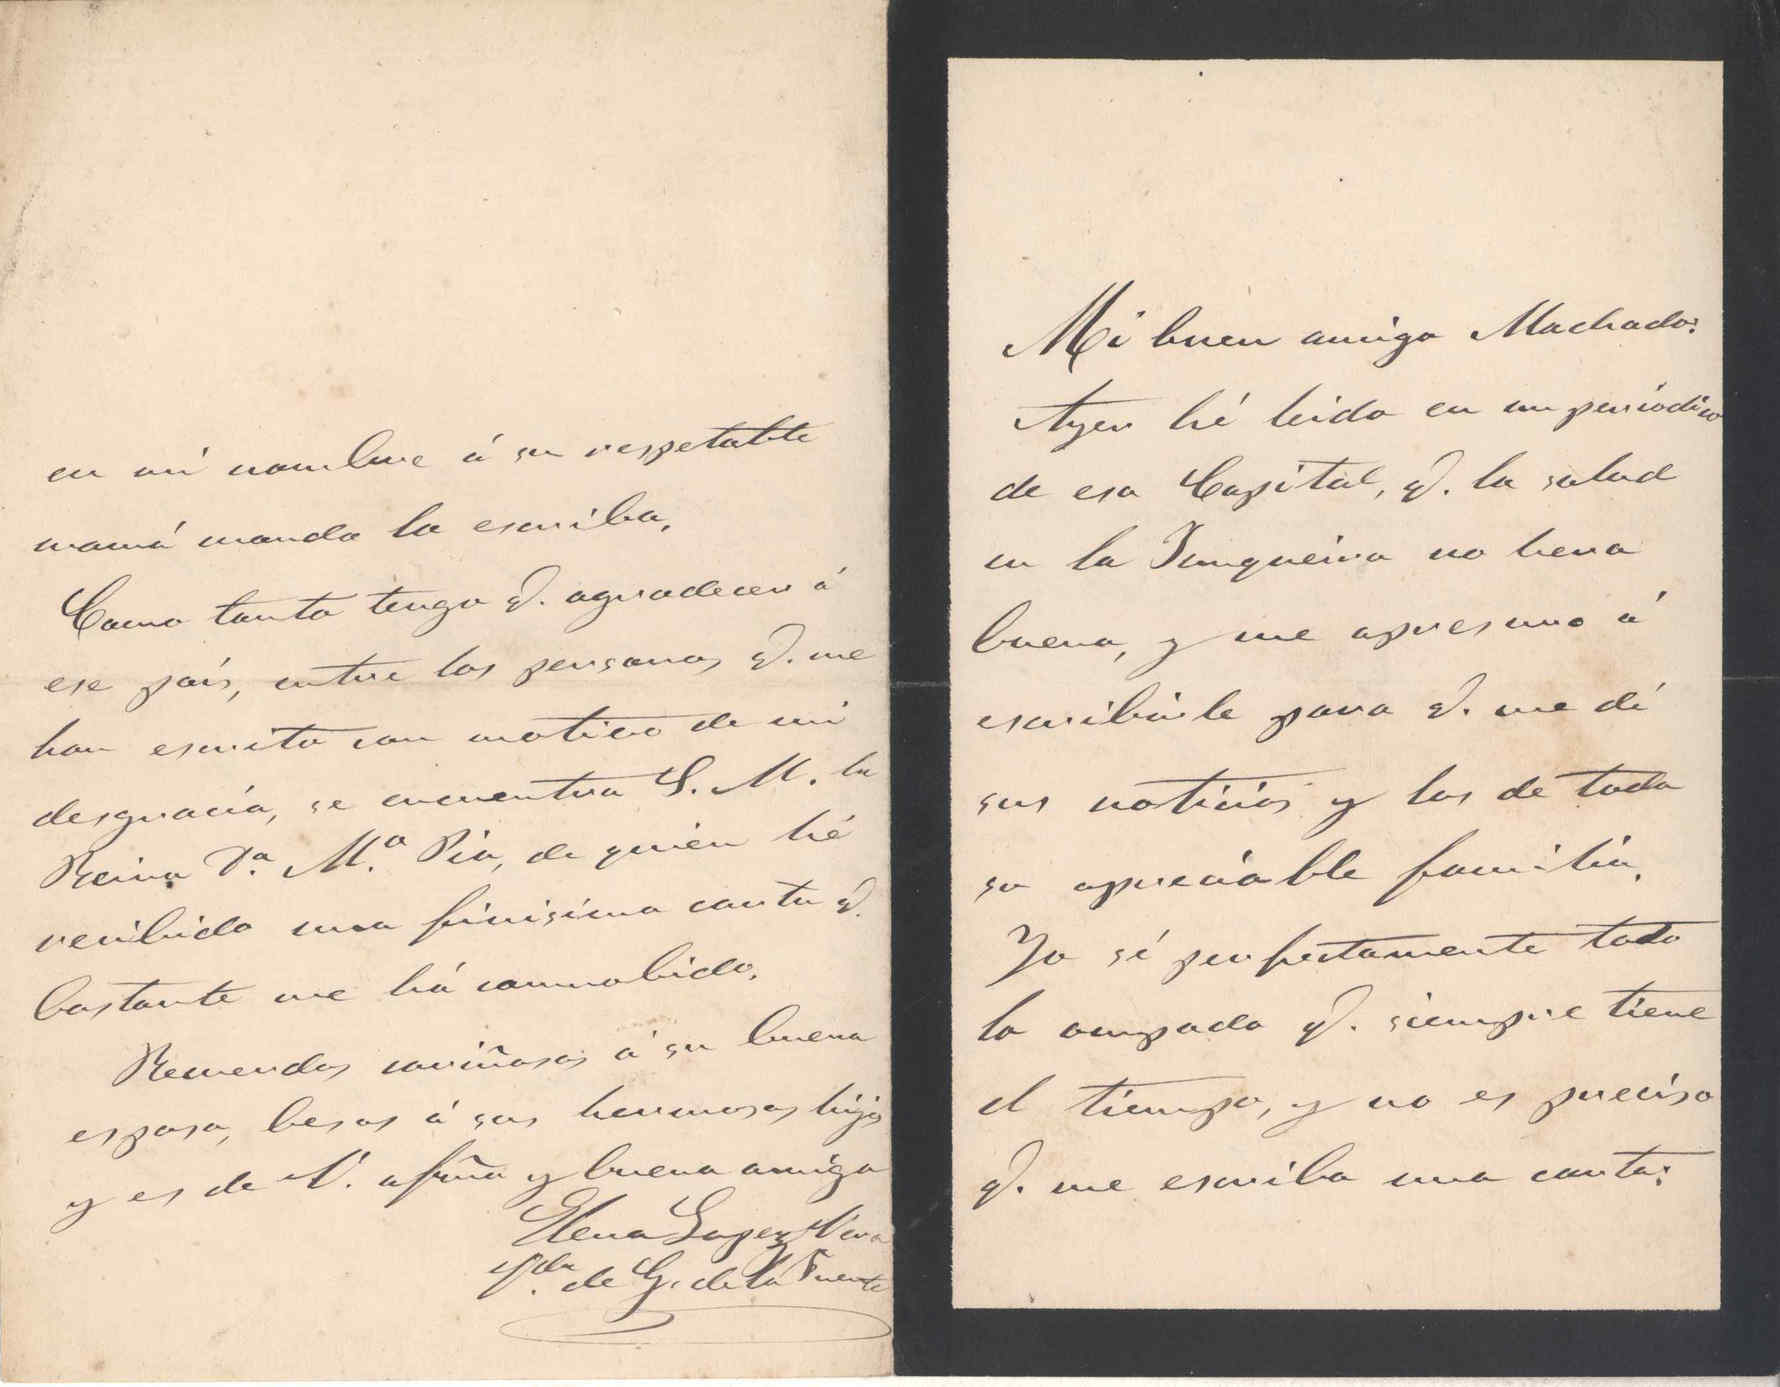 Mi buen amigo Machado:
Ayer hé leido en un periódico
de esa Capital, q. la salud
en la Junqueira no hera
buena, y me apresuro á
escribirle para q. me dé
sus noticias y las de toda
su apreciable familia.
Yo sé perfectamente todo
lo ocupado q. siempre tiene
el tiempo, y no es preciso
q. me escriba una carta:
en mi nombre á su respetable
mamá mande la escriba.
Como tanto tengo q. agradecer á
ese país, entre las personas q. me
han escrito con motivo de mi
desgracia, se encuentra S. M. la
Reina D.a M.a Pia, de quien hé
recibido una finisima carta q.
bastante me há conmobido.
Recuerdos cariñosos á su buena
esposa, besos á sus hermosos hijos
y es de V. afma y buena amiga
Elena Lopez
Vda. de G. de la Fuente